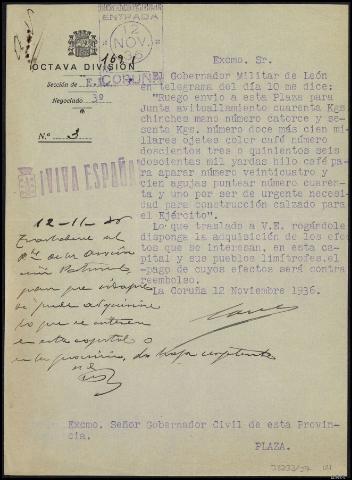 ENTRADA
12
NOV.
36
CORUÑA
OCTAVA DIVISIÓN
Sección de E.M.
Negociado 3º
N.º 3
¡VIVA ESPAÑA
Excmo. Sr.
El Gobernador Militar de León
en telegrama del día 10 me dice:
"Ruego envio a este Plaza para
Junta avituallamiento cuarenta Kgs
chinches mano número catorce y se-
senta Kgs. número doce más cien mi-
llares ojetes color café número
doscientos tres o quinientos seis
doscientas mil yardas hilo café pa-
ra aparar número veinticuatro y
cien agujas puntear número cuaren-
ta y uno por ser de urgente necesi-
dad para construcción calzado para
el Ejército".
Lo que traslado a V.E. rogándole
disponga la adquisición de los efec-
tos que se interesan, en esta ca-
pital y sus pueblos limítrofes.el
pago de cuyos efectos será contra
reembolso.
La Coruña 12 Noviembre 1936.
12-11-36
para que
se puede adquirir
lo que se interesa
en esta capital o
en la provincia,
Excmo. Señor Gobernador Civil de esta Provin-
cia.
PLAZA.